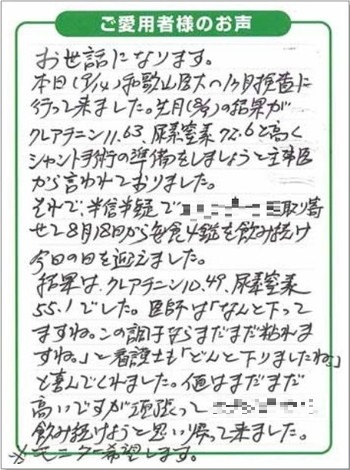 ご愛用者様のお声
お世話になります。
本日(9/14)和歌山医大の1ヶ月検査に
行って来ました。先月(8/)の結果が
クレアチニン11.63、尿素窒素72.6と高く
シャント手術の準備をしましょうと主治医
から言われておりました。
それで、半信半疑で 取り寄
せて8月18日から毎食4錠を飲み続け
今日の日を迎えました。
結果は、クレアチニン10.49、尿素窒素
55.1でした。医師は「なんと下って
ますね。この調子ならまだまだ粘れま
すね。」と看護士も「どんと下りましたね」
と喜んでくれました。値はまだまだ
高いですが頑張って
飲み続けようと思い帰って来ました。
※モニター希望します。